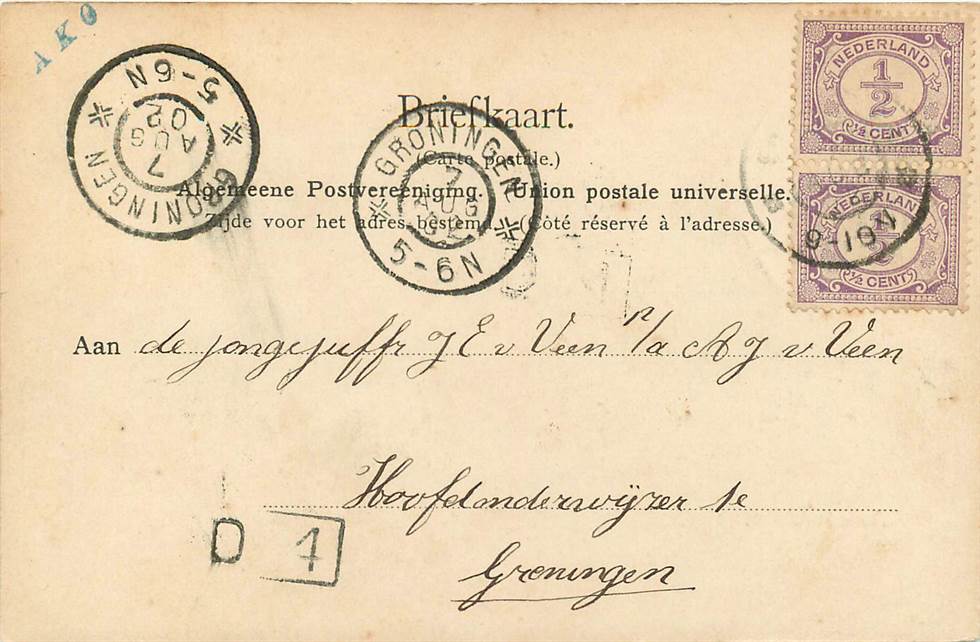 AKO
GRONINGEN
5-6N
7
AUG
02
GRONINGEN
7
AUG
02
5-6N
NEDERLAND
1/2
(½ CENT)
NEDERLAND
(½ CENT)
9-10V
Briefkaart.
(Carte postale.)
Algemeene Postvereeniging. Union postale universelle.
Zijde voor het adres bestemd. (Côté réservé à l'adresse.)
Aan de jongejuffr J E v Veen p/a A J v Veen
Hoofdonderwijzer te
Groningen
D 1